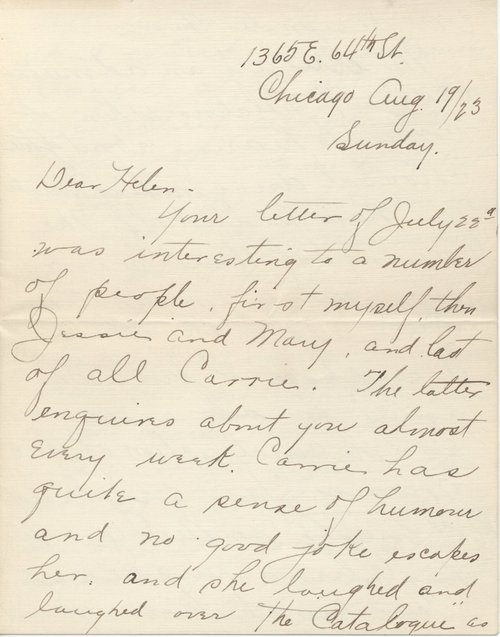 1365 E. 64th St.
Chicago Aug. 19/23
Sunday.
Dear Helen -
Your letter of July 22d
was interesting to a number
of people, first myself, then
Jessie and Mary, and last
of all Carrie. The latter
enquires about you almost
every week. Carrie has
quite a sense of humour
and no good joke escapes
her, and she laughed and
laughed over "The Catalogue" as